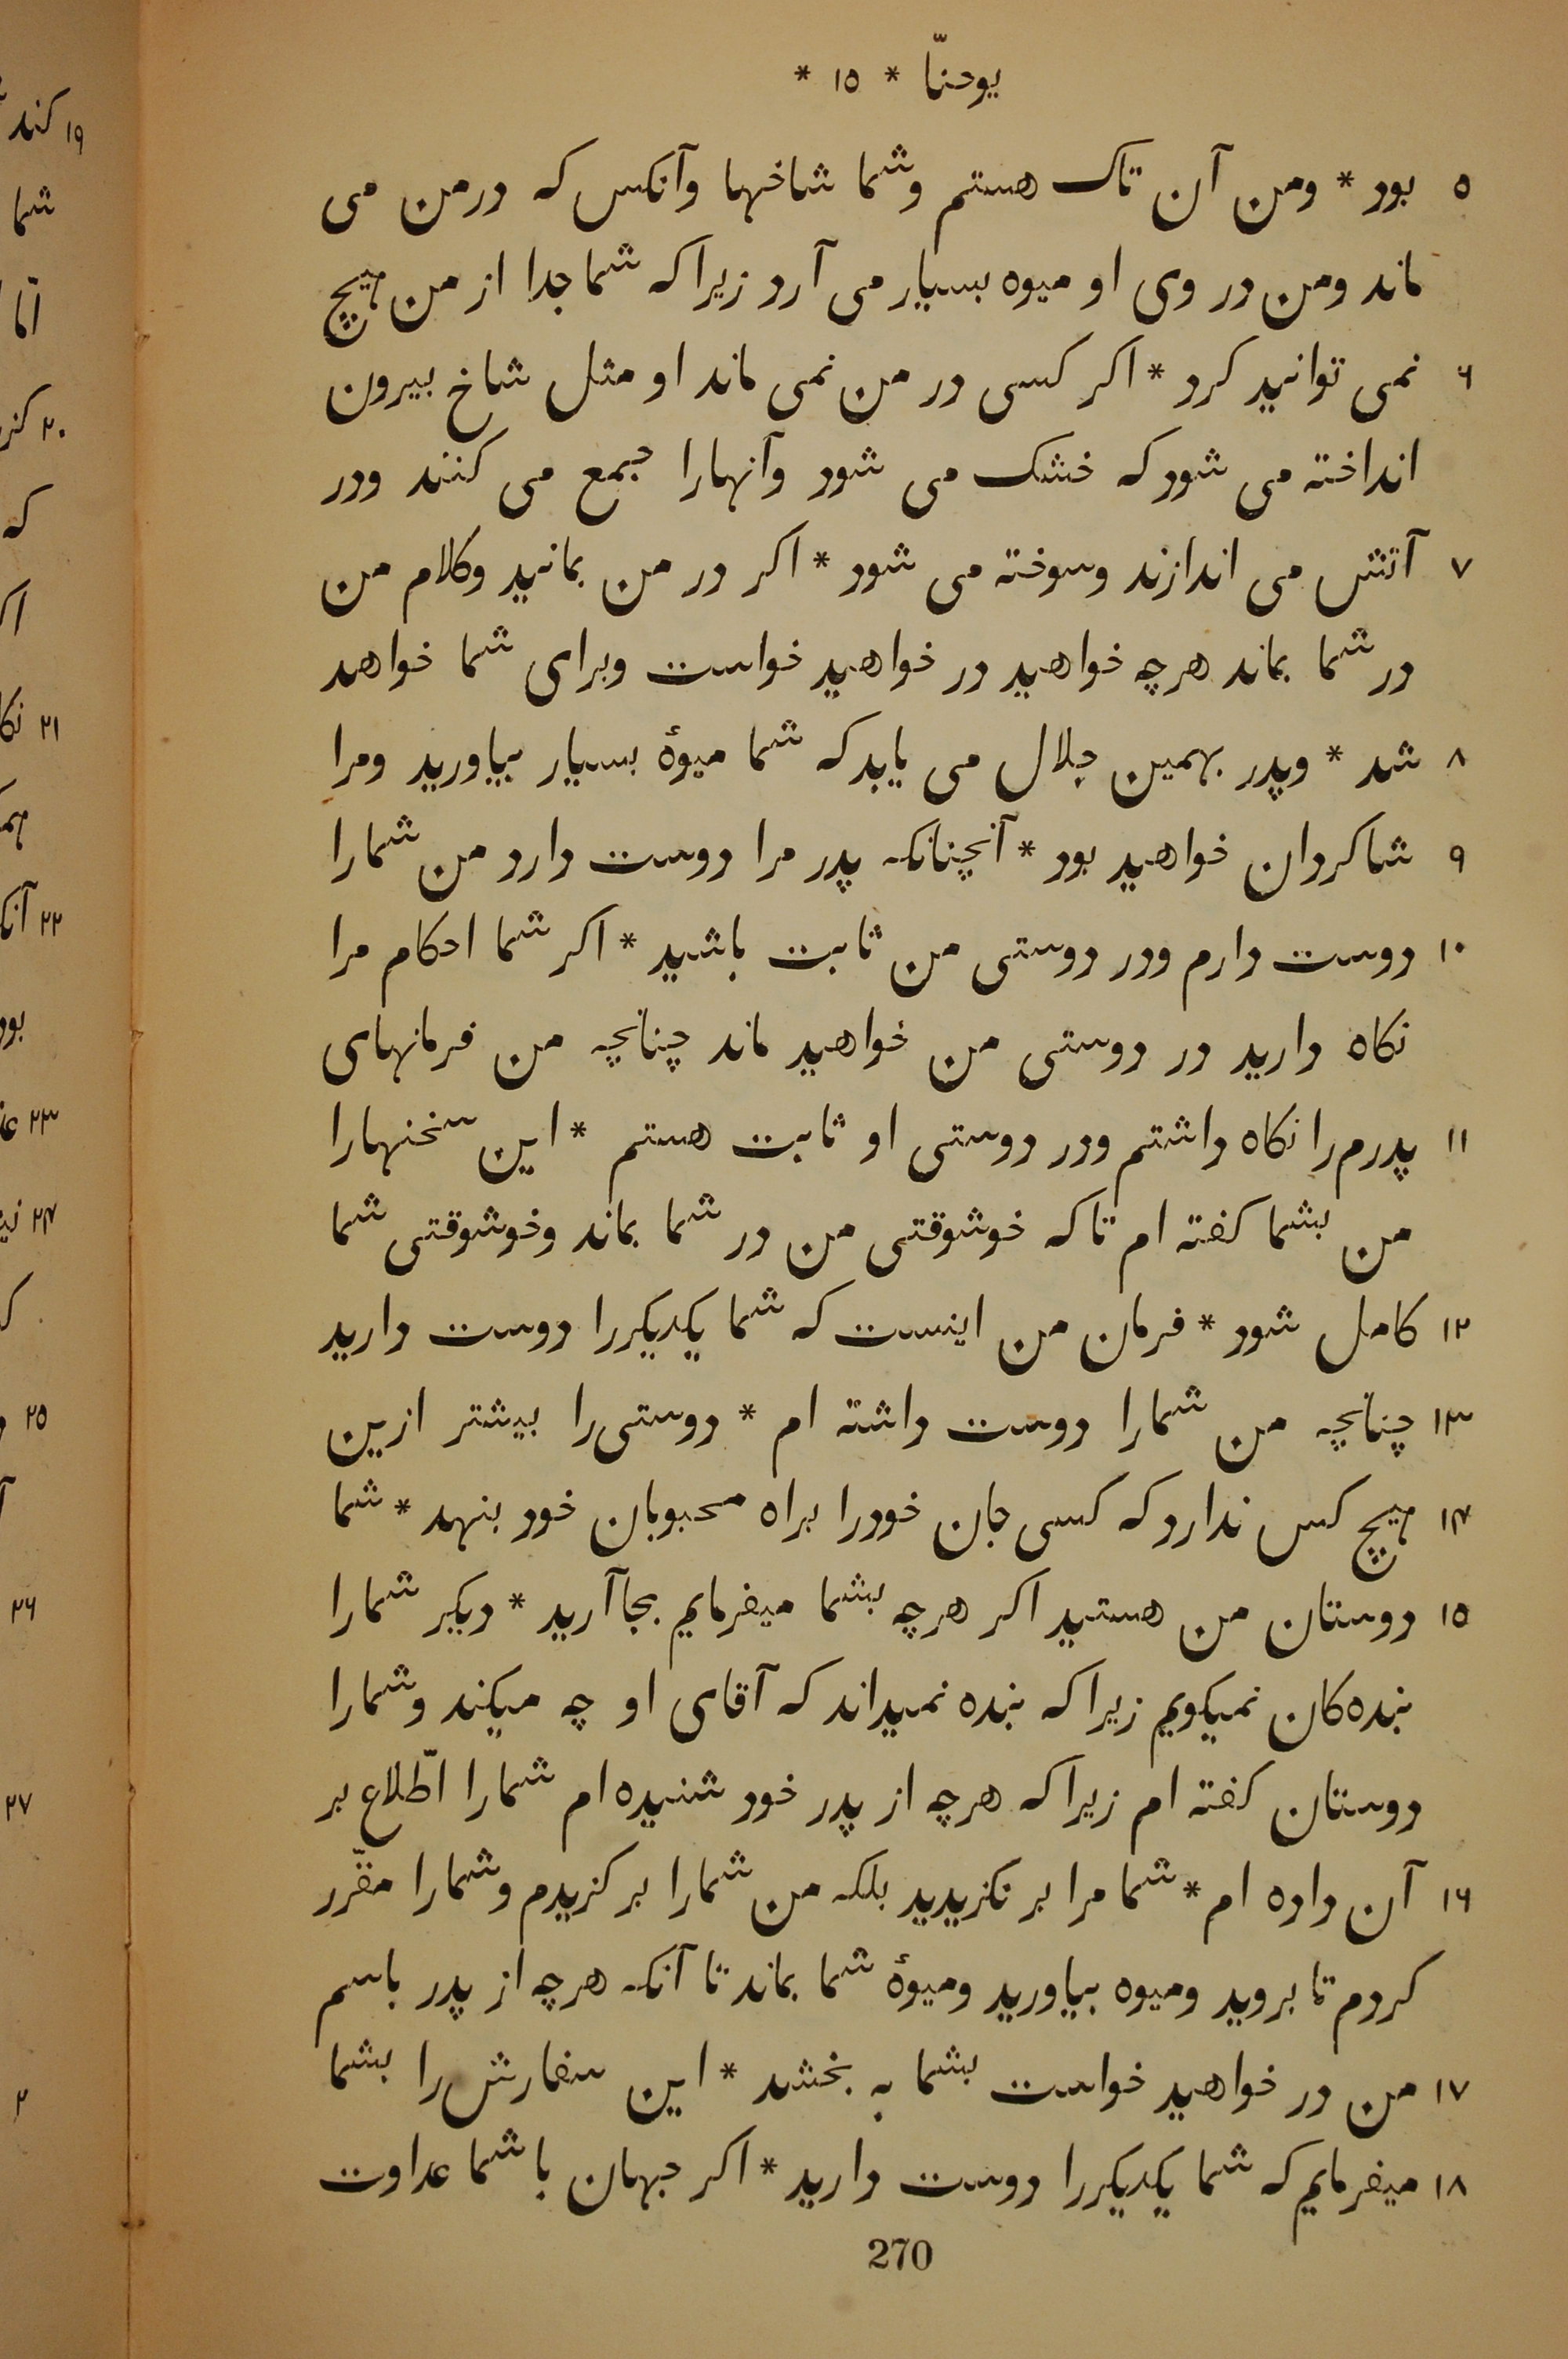 یوحنّا * ۱۵ *
۵ بود * ومن آن تاک هستم وشما شاخها وآنکس که درمن می
ماند ومن در وی او میوه بسیار می آرد زیرا که شما جدا از من هیچ
۶ نمی توانید کرد * اکر کسی در من نمی ماند او مثل شاخ بیرون
انداخته می شود که خشک می شود وآنهارا جمع می کنند ودر
۷ آتش می اندازند وسوخته می شود * اکر در من بمانید وکلام من
در شما بماند هرچه خواهید در خواهید خواست وبرای شما خواهد
۸ شد * وپدر بهمین جلال می یابد که شما میوهٔ بسیار بیاورید ومرا
۹ شاکردان خواهید بود * آنچنانکه پدر مرا دوست دارد من شمارا
۱۰ دوست دارم ودر دوستی من ثابت باشید * اکر شما احکام مرا
نکاه دارید در دوستی من خواهید ماند چنانچه من فرمانهای
۱۱ پدرم را نکاه داشتم ودر دوستی او ثابت هستم * این سخنهارا
من بشما کفته ام تا که خوشوقتی من در شما بماند وخوشوقتی شما
۱۲ کامل شود * فرمان من اینست که شما یکدیکررا دوست دارید
۱۳ چنانچه من شمارا دوست داشته ام * دوستی را بیشتر ازین
۱۴ هیچ کس ندارد که کسی جان خودرا براه محبوبان خود بنهد * شما
۱۵ دوستان من هستید اکر هرچه بشما میفرمایم بجا آرید * دیکر شمارا
بنده کان نمیکویم زیرا که بنده نمیداند که آقای او چه میکند وشمارا
دوستان کفته ام زیرا که هرچه از پدر خود شنیده ام شمارا اطّلاع بر
۱۶ آن داده ام * شما مرا بر نکزیدید بلکه من شمارا بر کزیدم وشمارا مقرّر
کردم تا بروید ومیوه بیاورید ومیوهٔ شما بماند تا آنکه هرچه از پدر باسم
۱۷ من در خواهید خواست بشما به بخشد * این سفارش را بشما
۱۸ میفرمایم که شما یکدیکررا دوست دارید * اکر جهان با شما عداوت
270
۱۹ کند
شما
امّا
۲۰
که
۲۱
۲۲
بود
۲۳
۲۴
۲۵
۲۶
۲۷
۲